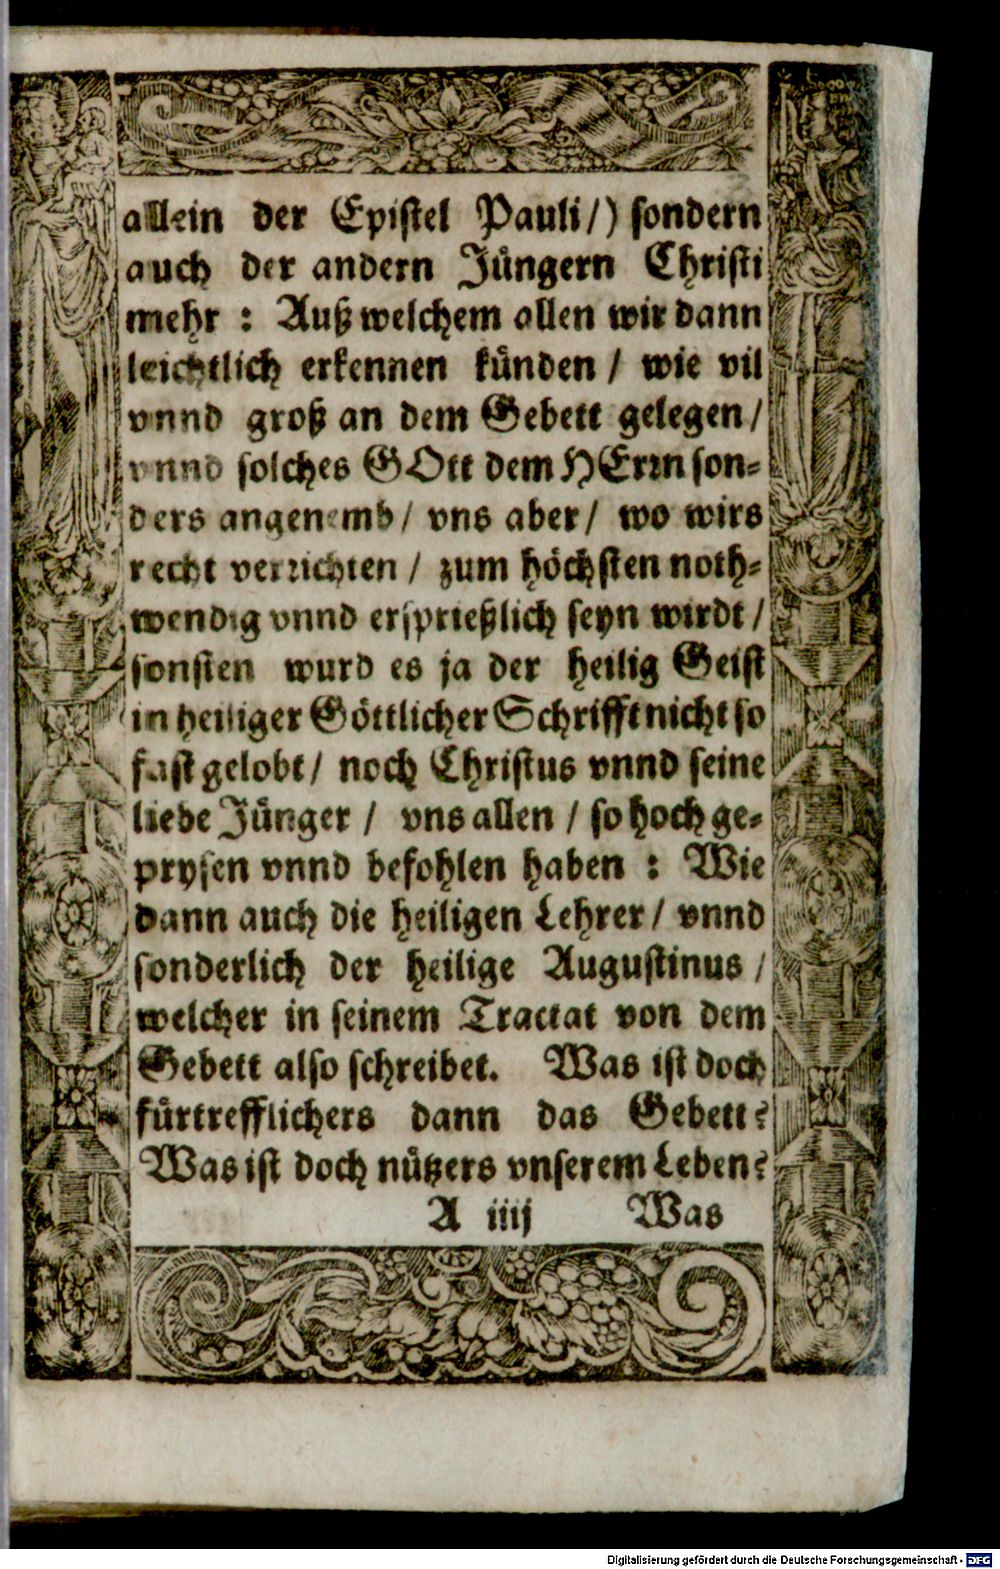 allein der Epistel Pauli/) sondern
auch der andern Jüngern Christi
mehr : Auß welchem allen wir dann
leichtlich erkennen künden / wie vil
vnnd groß an dem Gebett gelegen/
vnnd solches GOtt dem HErrn son-
ders angenemb/ vns aber/ wo wirs
recht verrichten / zum höchsten noth-
wendig vnnd ersprießlich seyn wirdt/
sonsten wurd es ja der heilig Geist
in heiliger Göttlicher Schrifft nicht so
fast gelobt/ noch Christus vnnd seine
liebe Jünger / vns allen / so hoch ge-
prysen vnnd befohlen haben : Wie
dann auch die heiligen Lehrer/ vnnd
sonderlich der heilige Augustinus/
welcher in seinem Tractat von dem
Gebett also schreibet. Was ist doch
fürtrefflichers dann das Gebett?
Was ist doch nützers vnserem Leben?
A iiij Was
Digitalisierung gefördert durch die Deutsche Forschungsgemeinschaft - DFG